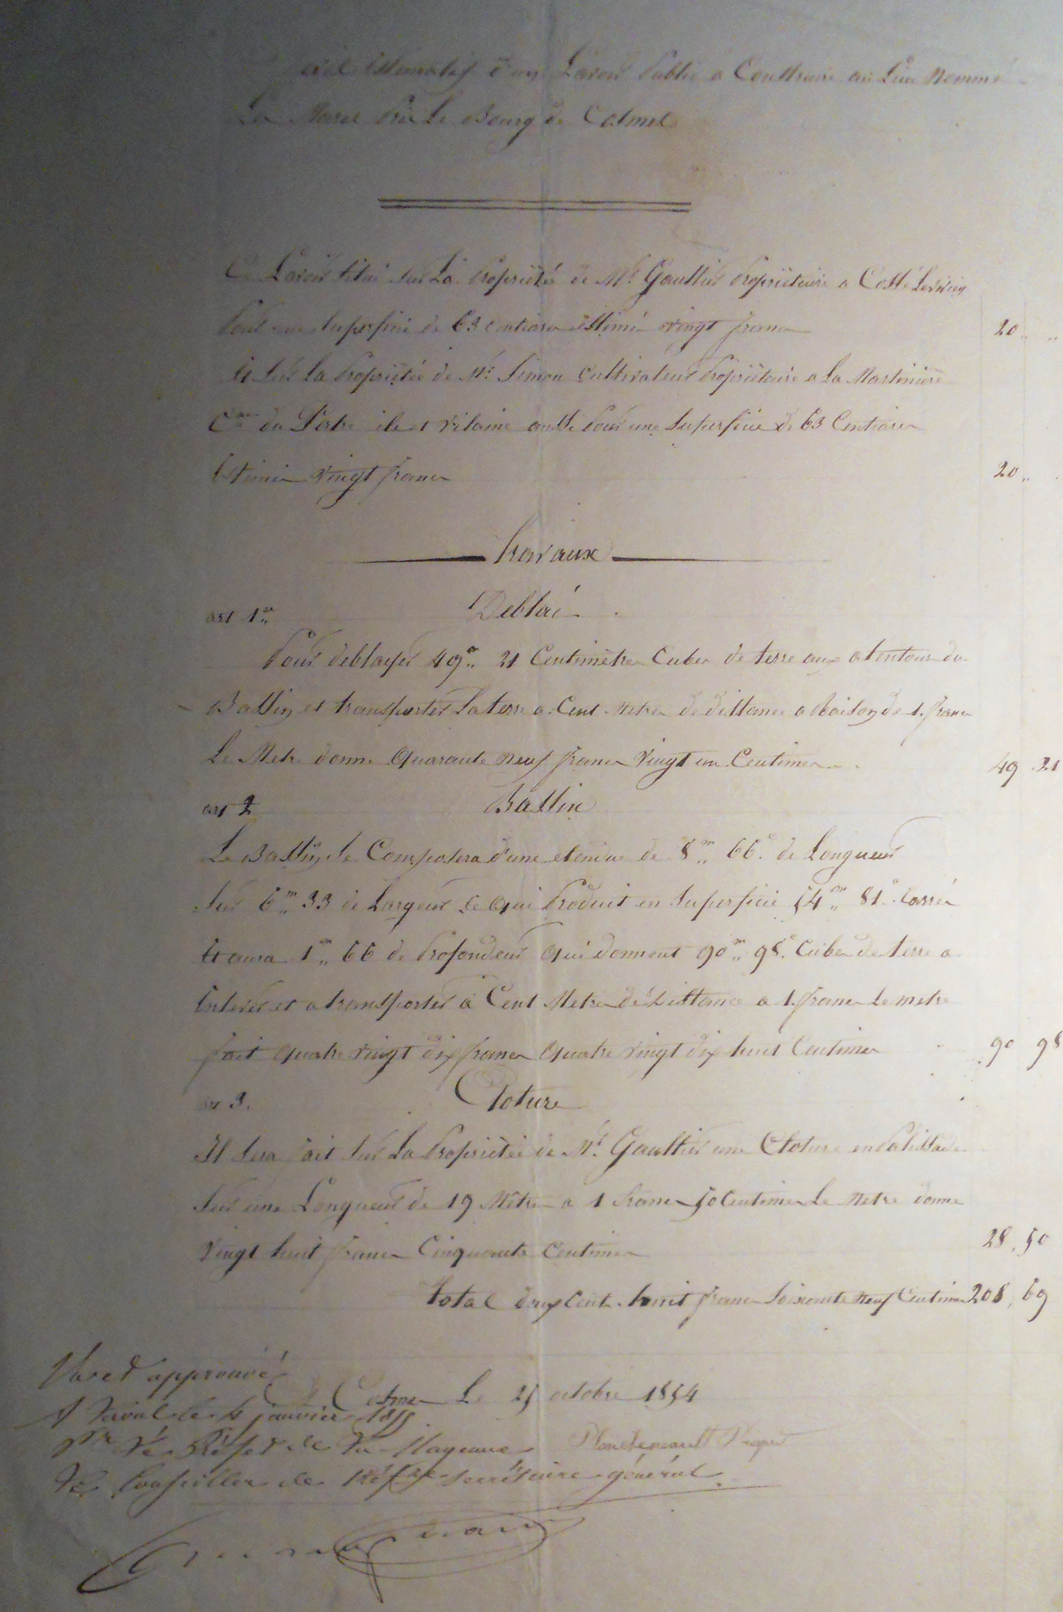 Devis Estimatif d'un Lavoir Public a Construire au Lieu Nommé
La Près Le Bourg de Cosmes
Ce Lavoir situé sur La Propriété de Mr Gaultier Propriétaire a Cossé Levivien
Pour une Superficie de 63 centiares Estimé vingt francs 20 "
Et Sur la Propriété de Mr Simon Cultivateur Propriétaire a La Martiniere
Cne du Pertre ile et vilaine aussi Pour une Superficie de 63 Centiares
Estimée vingt francs 20 "
Travaux
art 1er Deblai
Pour deblayer 49m 21 Centimètres Cubes de terre aux alentours du
Bassin et transporter La terre a Cent Metres de distance a Raison de 1 franc
Le Metre donne Quarante neuf francs Vingt un Centimes 49 21
art 2 Bassin
Le Bassin Se Composera d'une etendue de 8m 66c de Longueur
Sur 6m 33 de Largeur Ce Qui Produit en Superficie 54m 81c Carrés
Et aura 1m 66 de Profondeur Qui donnent 90m 98c Cubes de terre a
Enlever et a transporter a Cent Metres de Distance a 1 franc Le metre
fait Quatre vingt dix francs Quatre vingt dix huit Centimes 90 98
art 3. Cloture
Il Sera fait Sur La Propriété de Mr Gaultier une Cloture en Palissade
Sur une Longueur de 19 Mètres a 1 franc 50 Centimes Le Metre donne
Vingt huit francs Cinquante Centimes 28, 50
total deux Cent huit francs Soixante neuf Centimes 208, 69
Vu et approuvé
Cosmes Le 25 octobre 1854
A Laval le 4 janvier 1855
Pr Le Préfet de la Mayenne
Le Conseiller de Préfre secrétaire général